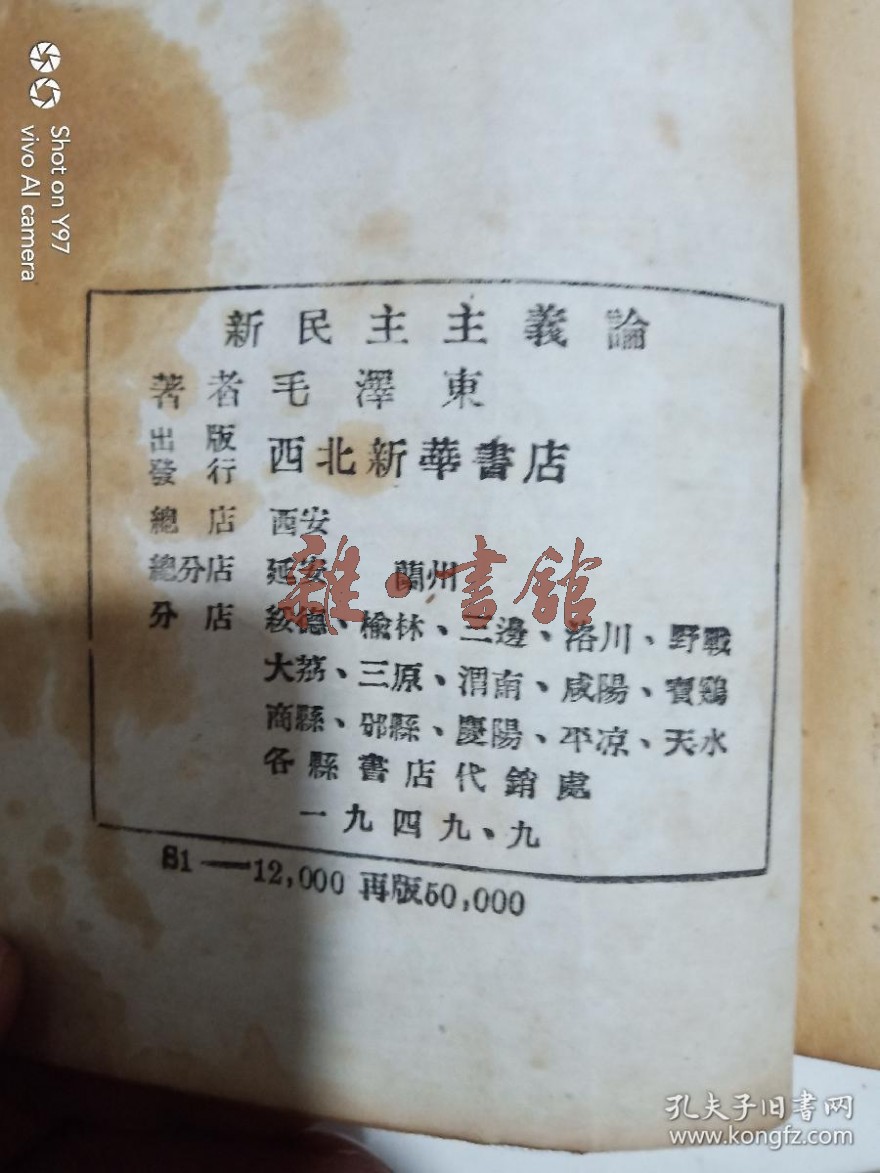 Shot on Y97
vivo AI camera
新民主主義論
著者 毛澤東
出版
發行 西北新華書店
總店 西安
總分店 延安 蘭州
分店 綏德、榆林、三邊、洛川、野戰
大荔、三原、渭南、咸陽、寶鷄
商縣、邠縣、慶陽、平凉、天水
各縣書店代銷處
一九四九、九
1—12,000 再版50,000
雜·書館
孔夫子旧书网
www.kongfz.com